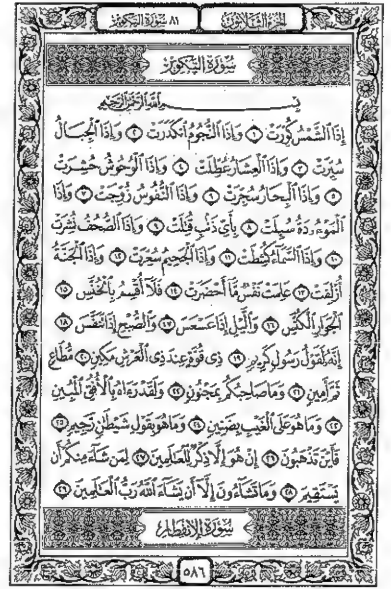 الجزء الثلاثون ٨١ سورة التكوير
سورة التكوير
بسم الله الرحمن الرحيم
إِذَا ٱلشَّمْسُ كُوِّرَتْ ١ وَإِذَا ٱلنُّجُومُ ٱنكَدَرَتْ ٢ وَإِذَا ٱلْجِبَالُ
سُيِّرَتْ ٣ وَإِذَا ٱلْعِشَارُ عُطِّلَتْ ٤ وَإِذَا ٱلْوُحُوشُ حُشِرَتْ
٥ وَإِذَا ٱلْبِحَارُ سُجِّرَتْ ٦ وَإِذَا ٱلنُّفُوسُ زُوِّجَتْ ٧ وَإِذَا
ٱلْمَوْءُۥدَةُ سُئِلَتْ ٨ بِأَىِّ ذَنۢبٍ قُتِلَتْ ٩ وَإِذَا ٱلصُّحُفُ نُشِرَتْ
١٠ وَإِذَا ٱلسَّمَآءُ كُشِطَتْ ١١ وَإِذَا ٱلْجَحِيمُ سُعِّرَتْ ١٢ وَإِذَا ٱلْجَنَّةُ
أُزْلِفَتْ ١٣ عَلِمَتْ نَفْسٌ مَّآ أَحْضَرَتْ ١٤ فَلَآ أُقْسِمُ بِٱلْخُنَّسِ ١٥
ٱلْجَوَارِ ٱلْكُنَّسِ ١٦ وَٱلَّيْلِ إِذَا عَسْعَسَ ١٧ وَٱلصُّبْحِ إِذَا تَنَفَّسَ ١٨
إِنَّهُۥ لَقَوْلُ رَسُولٍ كَرِيمٍ ١٩ ذِى قُوَّةٍ عِندَ ذِى ٱلْعَرْشِ مَكِينٍ ٢٠ مُّطَاعٍ
ثَمَّ أَمِينٍ ٢١ وَمَا صَاحِبُكُم بِمَجْنُونٍ ٢٢ وَلَقَدْ رَءَاهُ بِٱلْأُفُقِ ٱلْمُبِينِ
٢٣ وَمَا هُوَ عَلَى ٱلْغَيْبِ بِضَنِينٍ ٢٤ وَمَا هُوَ بِقَوْلِ شَيْطَٰنٍ رَّجِيمٍ ٢٥
فَأَيْنَ تَذْهَبُونَ ٢٦ إِنْ هُوَ إِلَّا ذِكْرٌ لِّلْعَٰلَمِينَ ٢٧ لِمَن شَآءَ مِنكُمْ أَن
يَسْتَقِيمَ ٢٨ وَمَا تَشَآءُونَ إِلَّآ أَن يَشَآءَ ٱللَّهُ رَبُّ ٱلْعَٰلَمِينَ ٢٩
سورة الإنفطار
٥٨٦